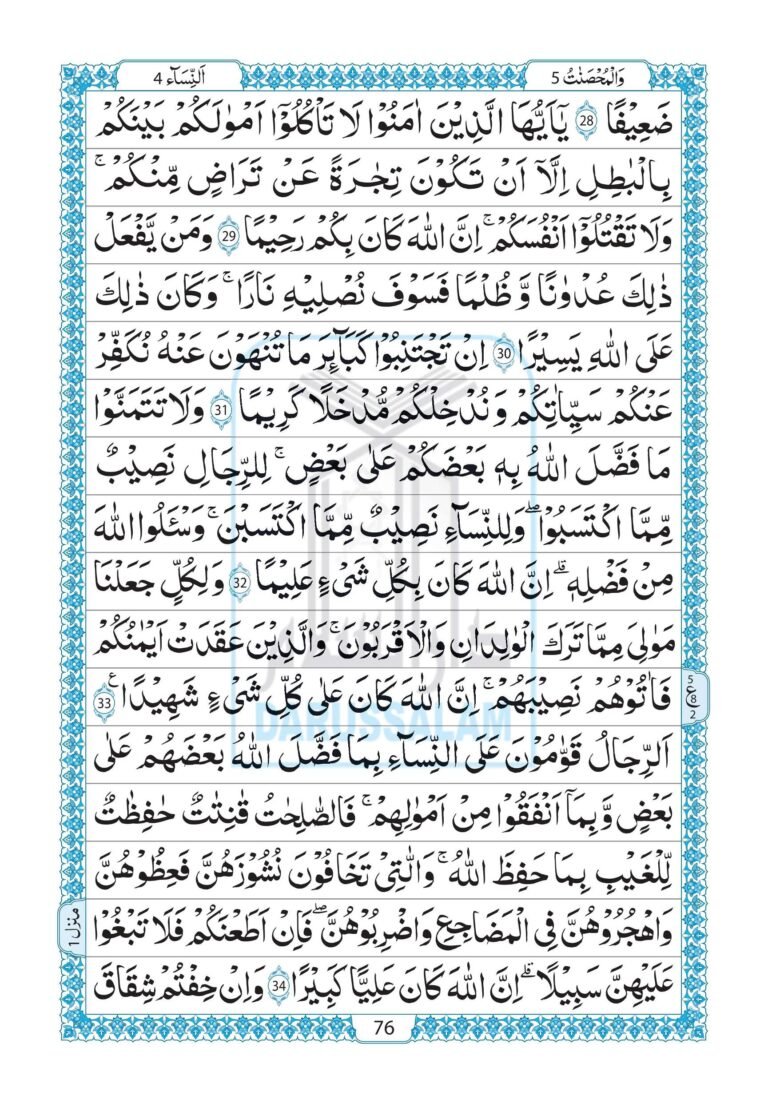 اَلنِّسَآء 4
وَالْمُحْصَنٰتُ 5
ضَعِيْفًا 28 يٰۤاَيُّهَا الَّذِيْنَ اٰمَنُوْا لَا تَاْكُلُوْۤا اَمْوٰلَكُمْ بَيْنَكُمْ
بِالْبٰطِلِ اِلَّاۤ اَنْ تَكُوْنَ تِجٰرَةً عَنْ تَرَاضٍ مِّنْكُمْ ۚ
وَلَا تَقْتُلُوْۤا اَنْفُسَكُمْ ۚ اِنَّ اللّٰهَ كَانَ بِكُمْ رَحِيْمًا 29 وَمَنْ يَّفْعَلْ
ذٰلِكَ عُدْوٰنًا وَّ ظُلْمًا فَسَوْفَ نُصْلِيْهِ نَارًا ۚ وَكَانَ ذٰلِكَ
عَلَى اللّٰهِ يَسِيْرًا 30 اِنْ تَجْتَنِبُوْا كَبَآئِرَ مَا تُنْهَوْنَ عَنْهُ نُكَفِّرْ
عَنْكُمْ سَيِّاٰتِكُمْ وَنُدْخِلْكُمْ مُّدْخَلًا كَرِيْمًا 31 وَلَا تَتَمَنَّوْا
مَا فَضَّلَ اللّٰهُ بِهٖ بَعْضَكُمْ عَلٰى بَعْضٍ ۚ لِلرِّجَالِ نَصِيْبٌ
مِّمَّا اكْتَسَبُوْا ۖ وَلِلنِّسَآءِ نَصِيْبٌ مِّمَّا اكْتَسَبْنَ ۚ وَسْـَٔلُوا اللّٰهَ
مِنْ فَضْلِهٖ ۗ اِنَّ اللّٰهَ كَانَ بِكُلِّ شَیْءٍ عَلِيْمًا 32 وَلِكُلٍّ جَعَلْنَا
مَوٰلِیَ مِمَّا تَرَكَ الْوٰلِدَانِ وَالْاَقْرَبُوْنَ ۚ وَالَّذِيْنَ عَقَدَتْ اَيْمٰنُكُمْ
فَاٰتُوْهُمْ نَصِيْبَهُمْ ۚ اِنَّ اللّٰهَ كَانَ عَلٰى كُلِّ شَیْءٍ شَهِيْدًا ع 33
5
ع
8
2
اَلرِّجَالُ قَوّٰمُوْنَ عَلَى النِّسَآءِ بِمَا فَضَّلَ اللّٰهُ بَعْضَهُمْ عَلٰى
بَعْضٍ وَّبِمَاۤ اَنْفَقُوْا مِنْ اَمْوٰلِهِمْ ۚ فَالصّٰلِحٰتُ قٰنِتٰتٌ حٰفِظٰتٌ
لِّلْغَيْبِ بِمَا حَفِظَ اللّٰهُ ۚ وَالّٰتِیْ تَخَافُوْنَ نُشُوْزَهُنَّ فَعِظُوْهُنَّ
وَاهْجُرُوْهُنَّ فِی الْمَضَاجِعِ وَاضْرِبُوْهُنَّ ۖ فَاِنْ اَطَعْنَكُمْ فَلَا تَبْغُوْا
منزل 1
عَلَيْهِنَّ سَبِيْلًا ۗ اِنَّ اللّٰهَ كَانَ عَلِيًّا كَبِيْرًا 34 وَاِنْ خِفْتُمْ شِقَاقَ
76
DARUSSALAM